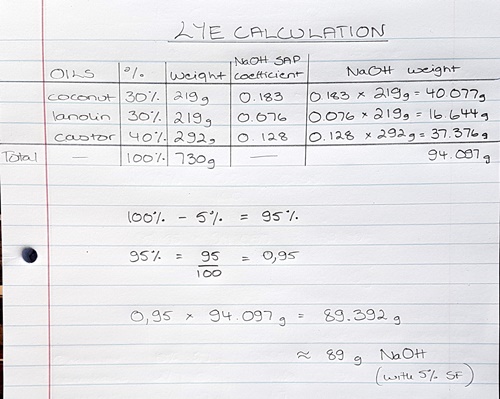 LYE CALCULATION
OILS % Weight NaOH SAP coefficient NaOH weight
coconut 30% 219g 0.183 0.183 × 219g = 40.077g
lanolin 30% 219g 0.076 0.076 × 219g = 16.644g
castor 40% 292g 0.128 0.128 × 292g = 37.376g
Total — 100% 730g — 94.097g
100% - 5% = 95%
95% = 95/100 = 0,95
0,95 × 94.097g = 89.392g
≈ 89 g NaOH
(with 5% SF)